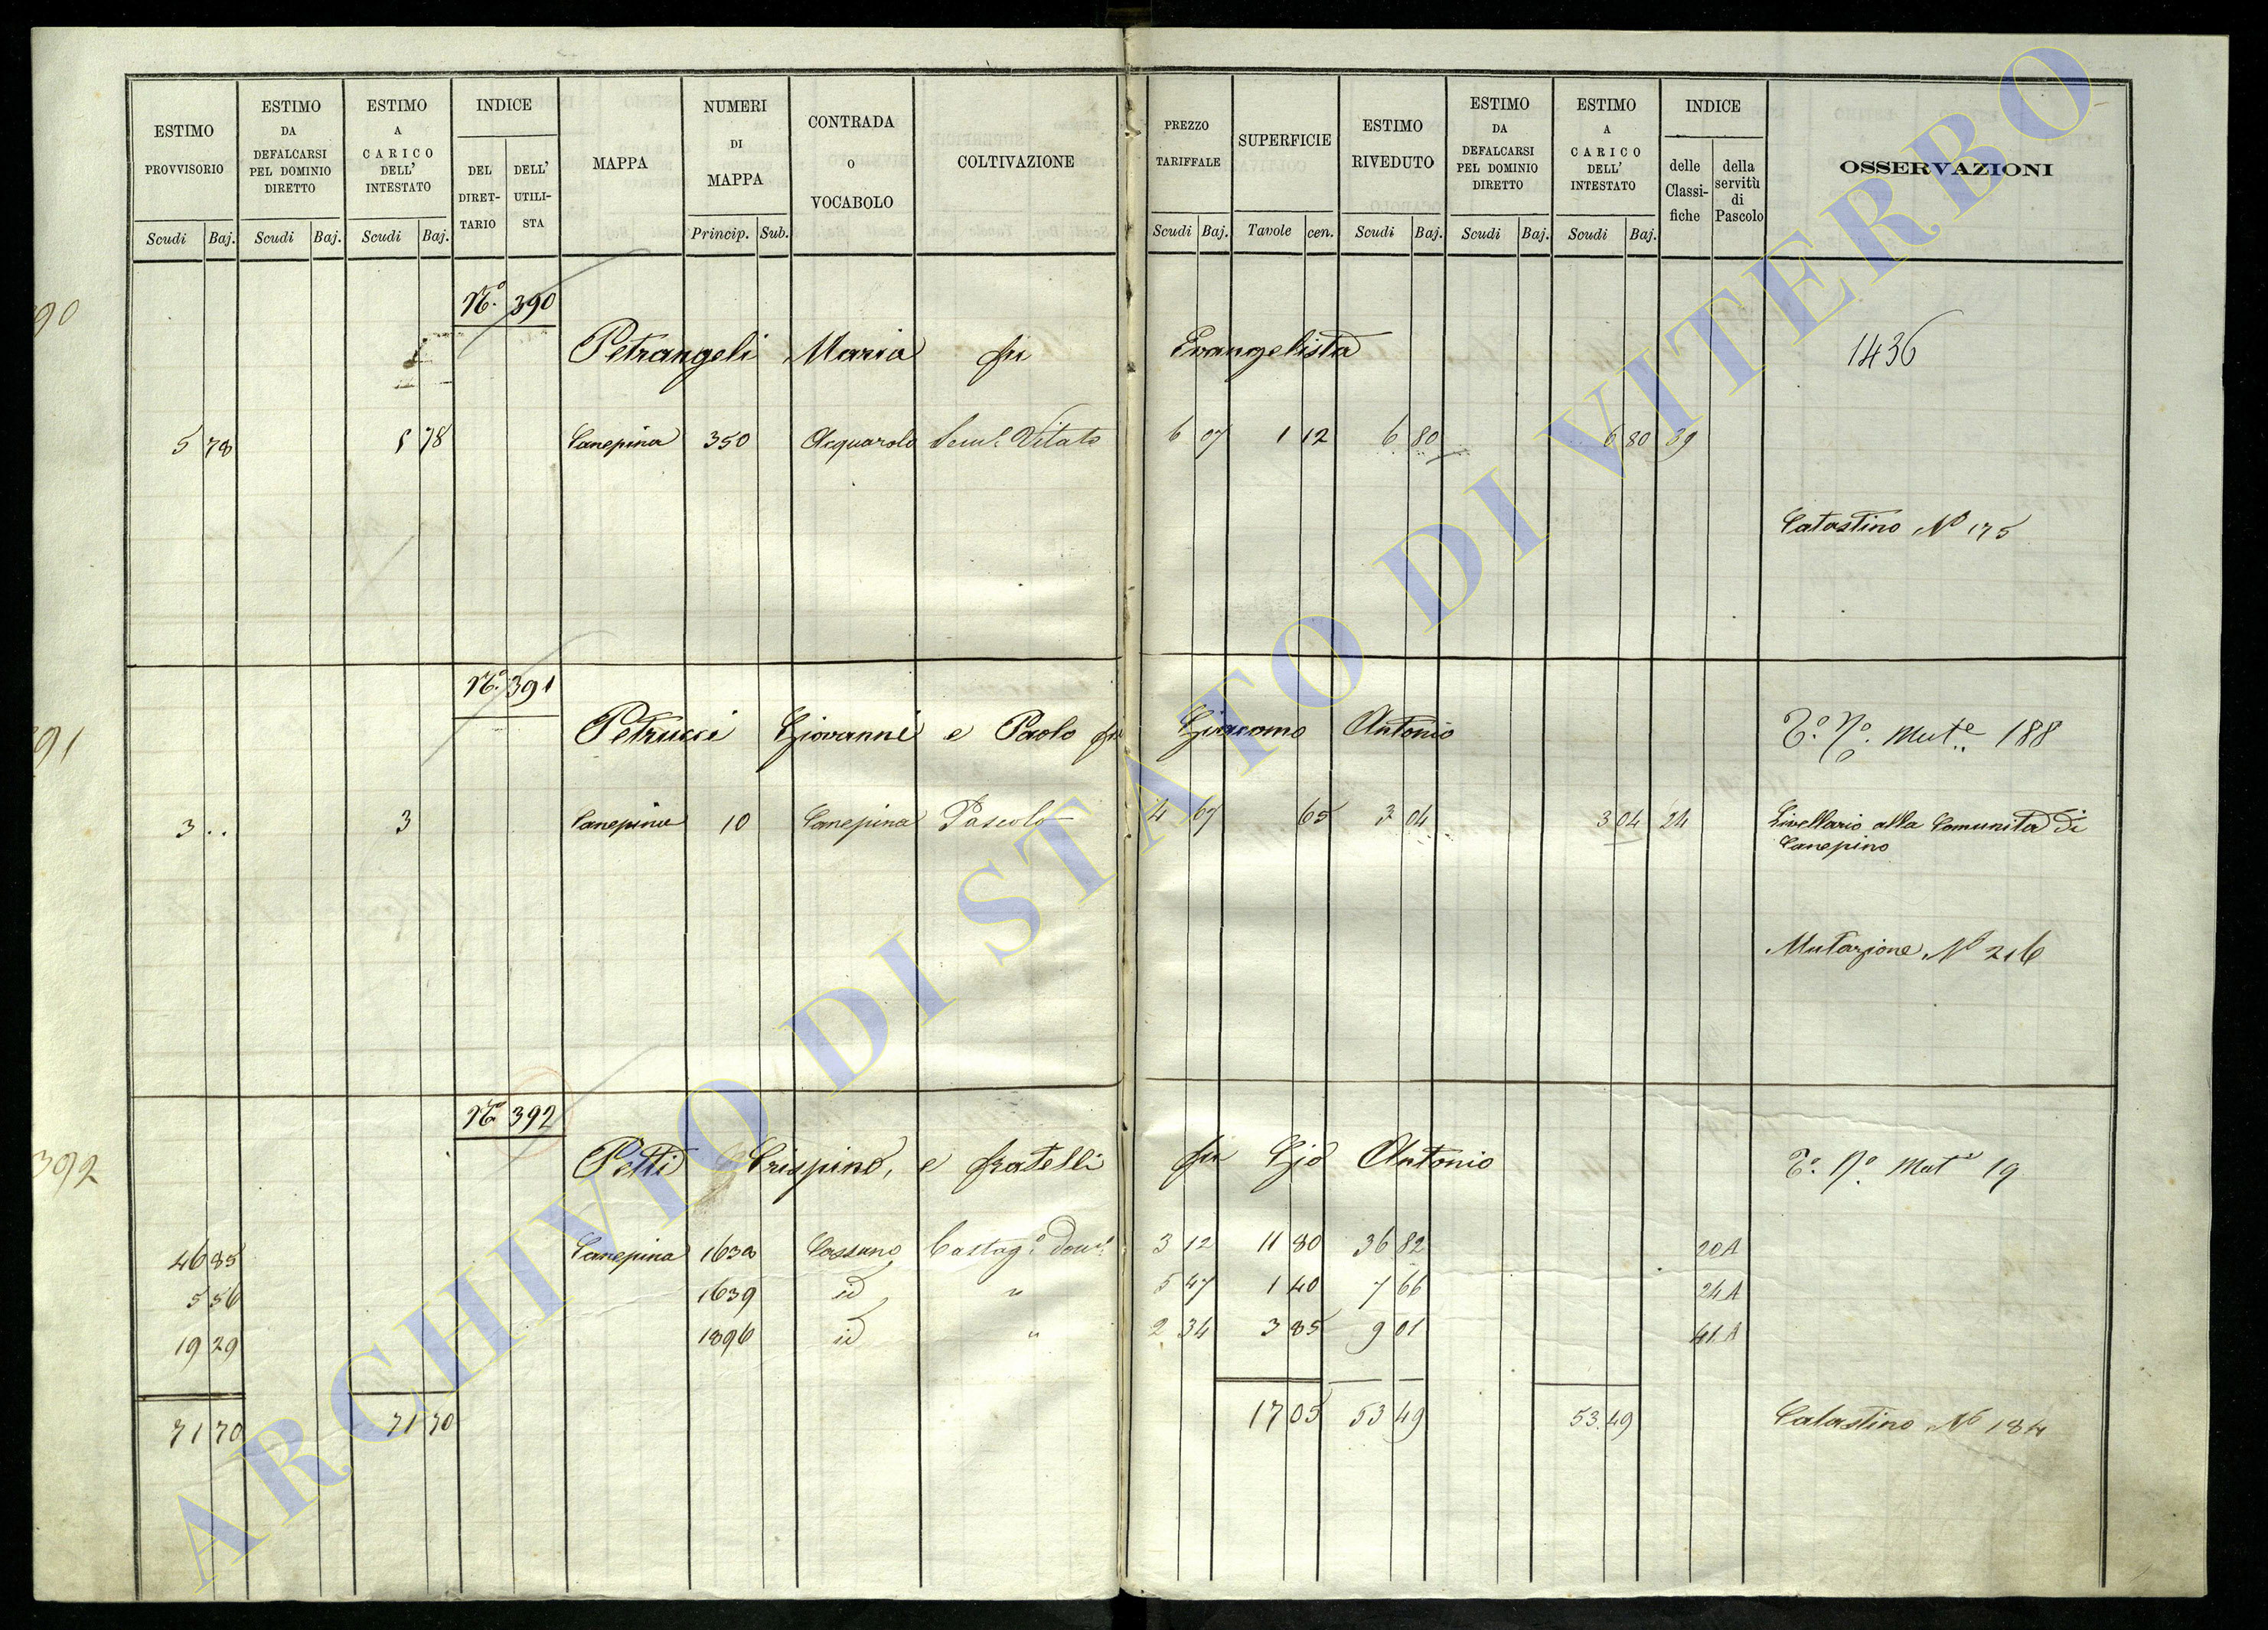 ESTIMO PROVVISORIO
Scudi Baj.
ESTIMO DA DEFALCARSI PEL DOMINIO DIRETTO
Scudi Baj.
ESTIMO A CARICO DELL' INTESTATO
Scudi Baj.
INDICE
DEL DIRET-TARIO
DELL' UTILI-STA
MAPPA
NUMERI DI MAPPA
Princip. Sub.
CONTRADA O VOCABOLO
COLTIVAZIONE
PREZZO TARIFFALE
Scudi Baj.
SUPERFICIE
Tavole cen.
ESTIMO RIVEDUTO
Scudi Baj.
ESTIMO DA DEFALCARSI PEL DOMINIO DIRETTO
Scudi Baj.
ESTIMO A CARICO DELL' INTESTATO
Scudi Baj.
INDICE
delle Classi-fiche
della servitù di Pascolo
OSSERVAZIONI
90
N.º 390
Petrangeli Maria fu Evangelista 1436
5 78 5 78 Canepina 350 Acquarolo Sem.e Vitato 6 07 1 12 6 80 6 80 39
Catastino Nº 175
91
N.º 391
Petrucci Giovanni e Paolo fu Giacomo Antonio Mut.e 188
3 .. 3 Canepina 10 Canepina Pascolo 4 67 65 3 04 3 04 24 Livellario alla Comunità di
Canepino
Mutazione Nº 216
392
Nº 392
Petti Crispino, e fratelli fu Gio Antonio Mut.e 19
46 85 Canepina 1638 Cassano Castag.o 3 12 11 80 36 82 20A
5 56 1639 id " 5 47 1 40 7 66 24A
19 29 1896 id " 2 34 3 85 9 01 41A
71 70 71 70 17 05 53 49 53 49 Catastino Nº 184
ARCHIVIO DI STATO DI VITERBO